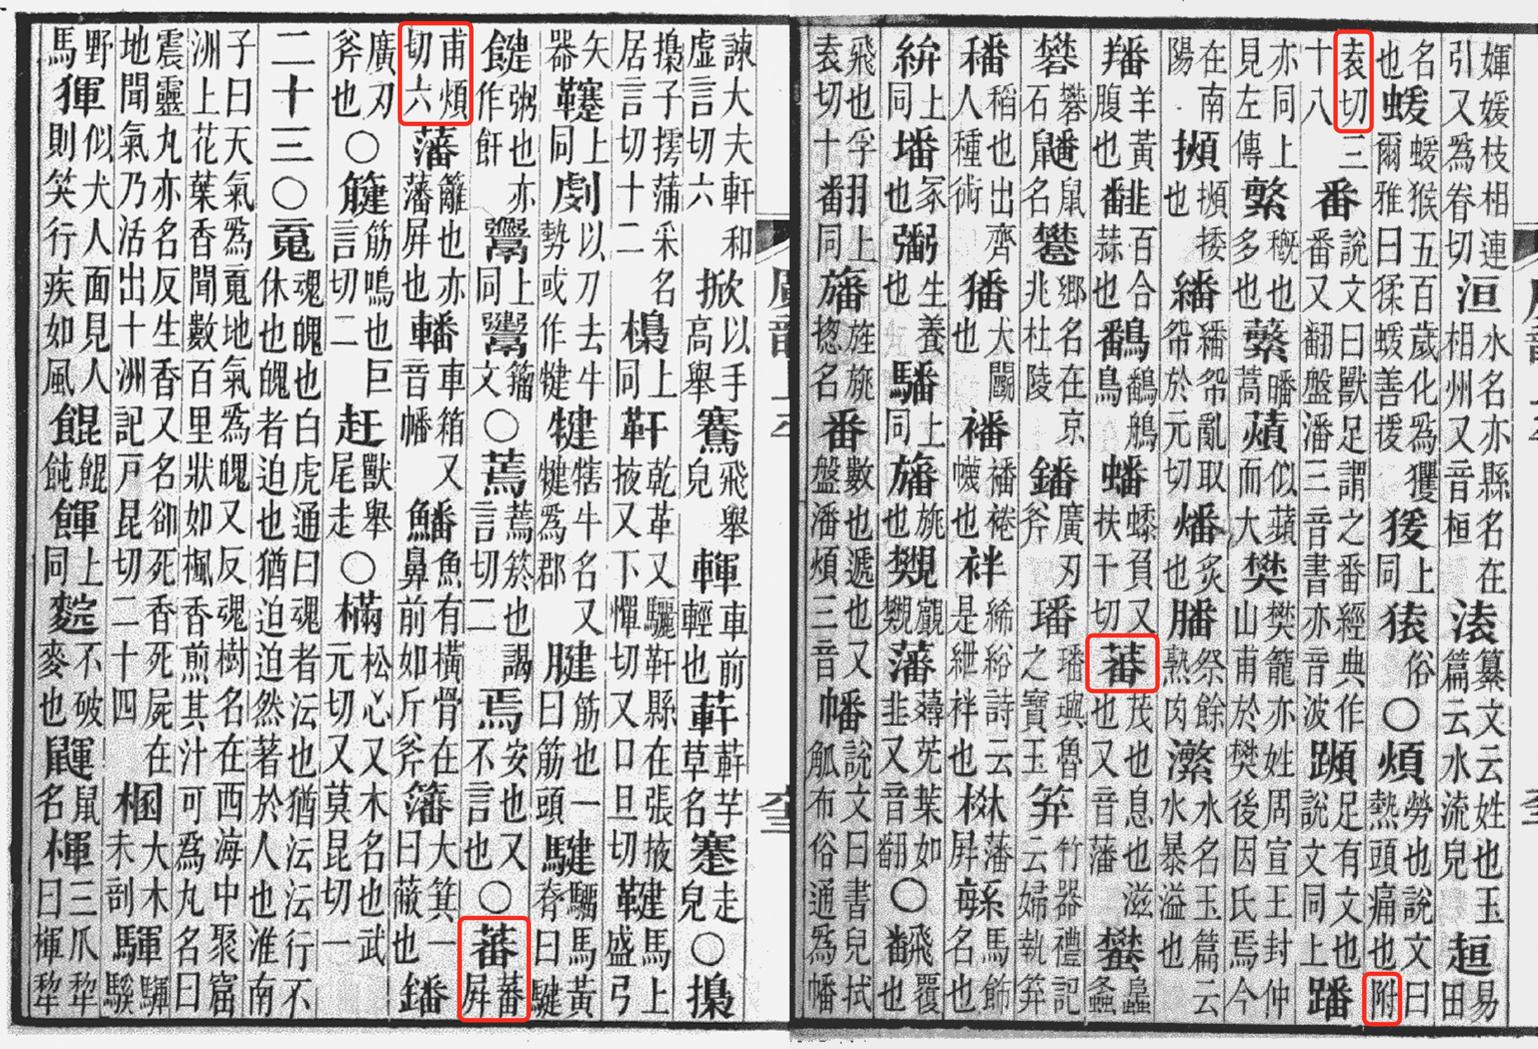 嬋媛枝相連引又爲眷切洹水名亦縣名在相州又音桓湲纂文云姓也玉篇云水流皃趄易田
名也蝯蝯猴五百歲化爲玃爾雅曰猱蝯善援猨上同猿俗○煩勞也說文曰熱頭痛也附
袁切三十八番說文曰獸足謂之番經典作番又翻盤潘三音書亦音波足有文也說文同上蹯
亦同上見左傳繁穊也多也蘩皤蒿薠似蘋而大樊樊籠亦姓周宣王封仲山甫於樊後因氏焉今
在南陽㩯㩯捼也繙繙帑亂取帑於元切燔炙也膰祭餘熟肉瀿水名玉篇云水暴溢也
羳羊黃腹也䪤百合蒜也鷭鷭鴋鳥蟠蟅負又扶干切蕃茂也息也滋也又音藩蠜螽
礬礬石鼠名鄉名在京兆杜陵鐇廣刃斧璠璠璵魯之寶玉笲竹器禮記云婦執笲
稻也出齊人種術犬鬭也襎襎裷幭也袢絺綌詩云是紲袢也棥藩屏緐馬飾名也
上同墦冢也生養也上同旛旐也藩韭葉如又音翻○飜飛覆也
飛也孚袁切十翻上同旛旌旗總名番數也遞也又盤潘煩三音幡說文曰書兒拭觚布俗通爲幡
諫大夫軒和虛言切六掀以手高舉騫飛舉皃軒車前輕也䒱草名蹇走皃○攑
攑子摴蒲采名居言切十二㯍上同靬乾革又驪靬縣在張掖又下憚切又口旦切鞬馬上盛弓
矢器韀上同劇以刀去牛勢或作犍犍犗牛名又犍爲郡腱筋也一曰筋頭騝騮馬黃脊曰騝
䭈粥也亦作飦鬻上同鬻籀文○蔫蔫菸也謁言切二焉安也又不言也○蕃蕃屏
甫煩切六藩籬也亦藩屏也轓車箱又音幡鱕魚有橫骨在鼻前如斤斧籓大箕一曰蔽也鐇
廣刃斧也○簻筋鳴也巨言切二赶獸舉尾走○樠松心又木名也武元切又莫昆切一
二十三○䰟魂魄也白虎通曰魂者沄也猶沄沄行不休也魄者迫也猶迫迫然著於人也淮南
子曰天氣爲䰟地氣爲魄又反魂樹名在西海中聚窟洲上花葉香聞數百里狀如楓香煎其汁可爲丸名曰
震靈丸亦名反生香又名卻死香死屍在地聞氣乃活出十洲記戶昆切二十四梱大木未剖䮝䮝騱
野馬㹆似犬人面見人則笑行疾如風餛餛飩餫上同不破麥也鼲鼠名楎三爪犂曰楎犂